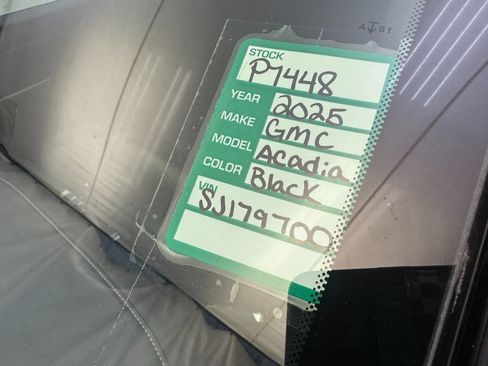 AS1
STOCK
P7448
YEAR 2025
MAKE GMC
MODEL Acadia
COLOR Black
VIN
SJ179700